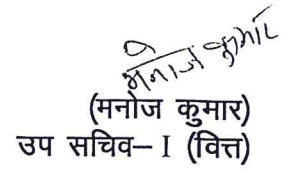 मनोज कुमार
(मनोज कुमार)
उप सचिव– I (वित्त)